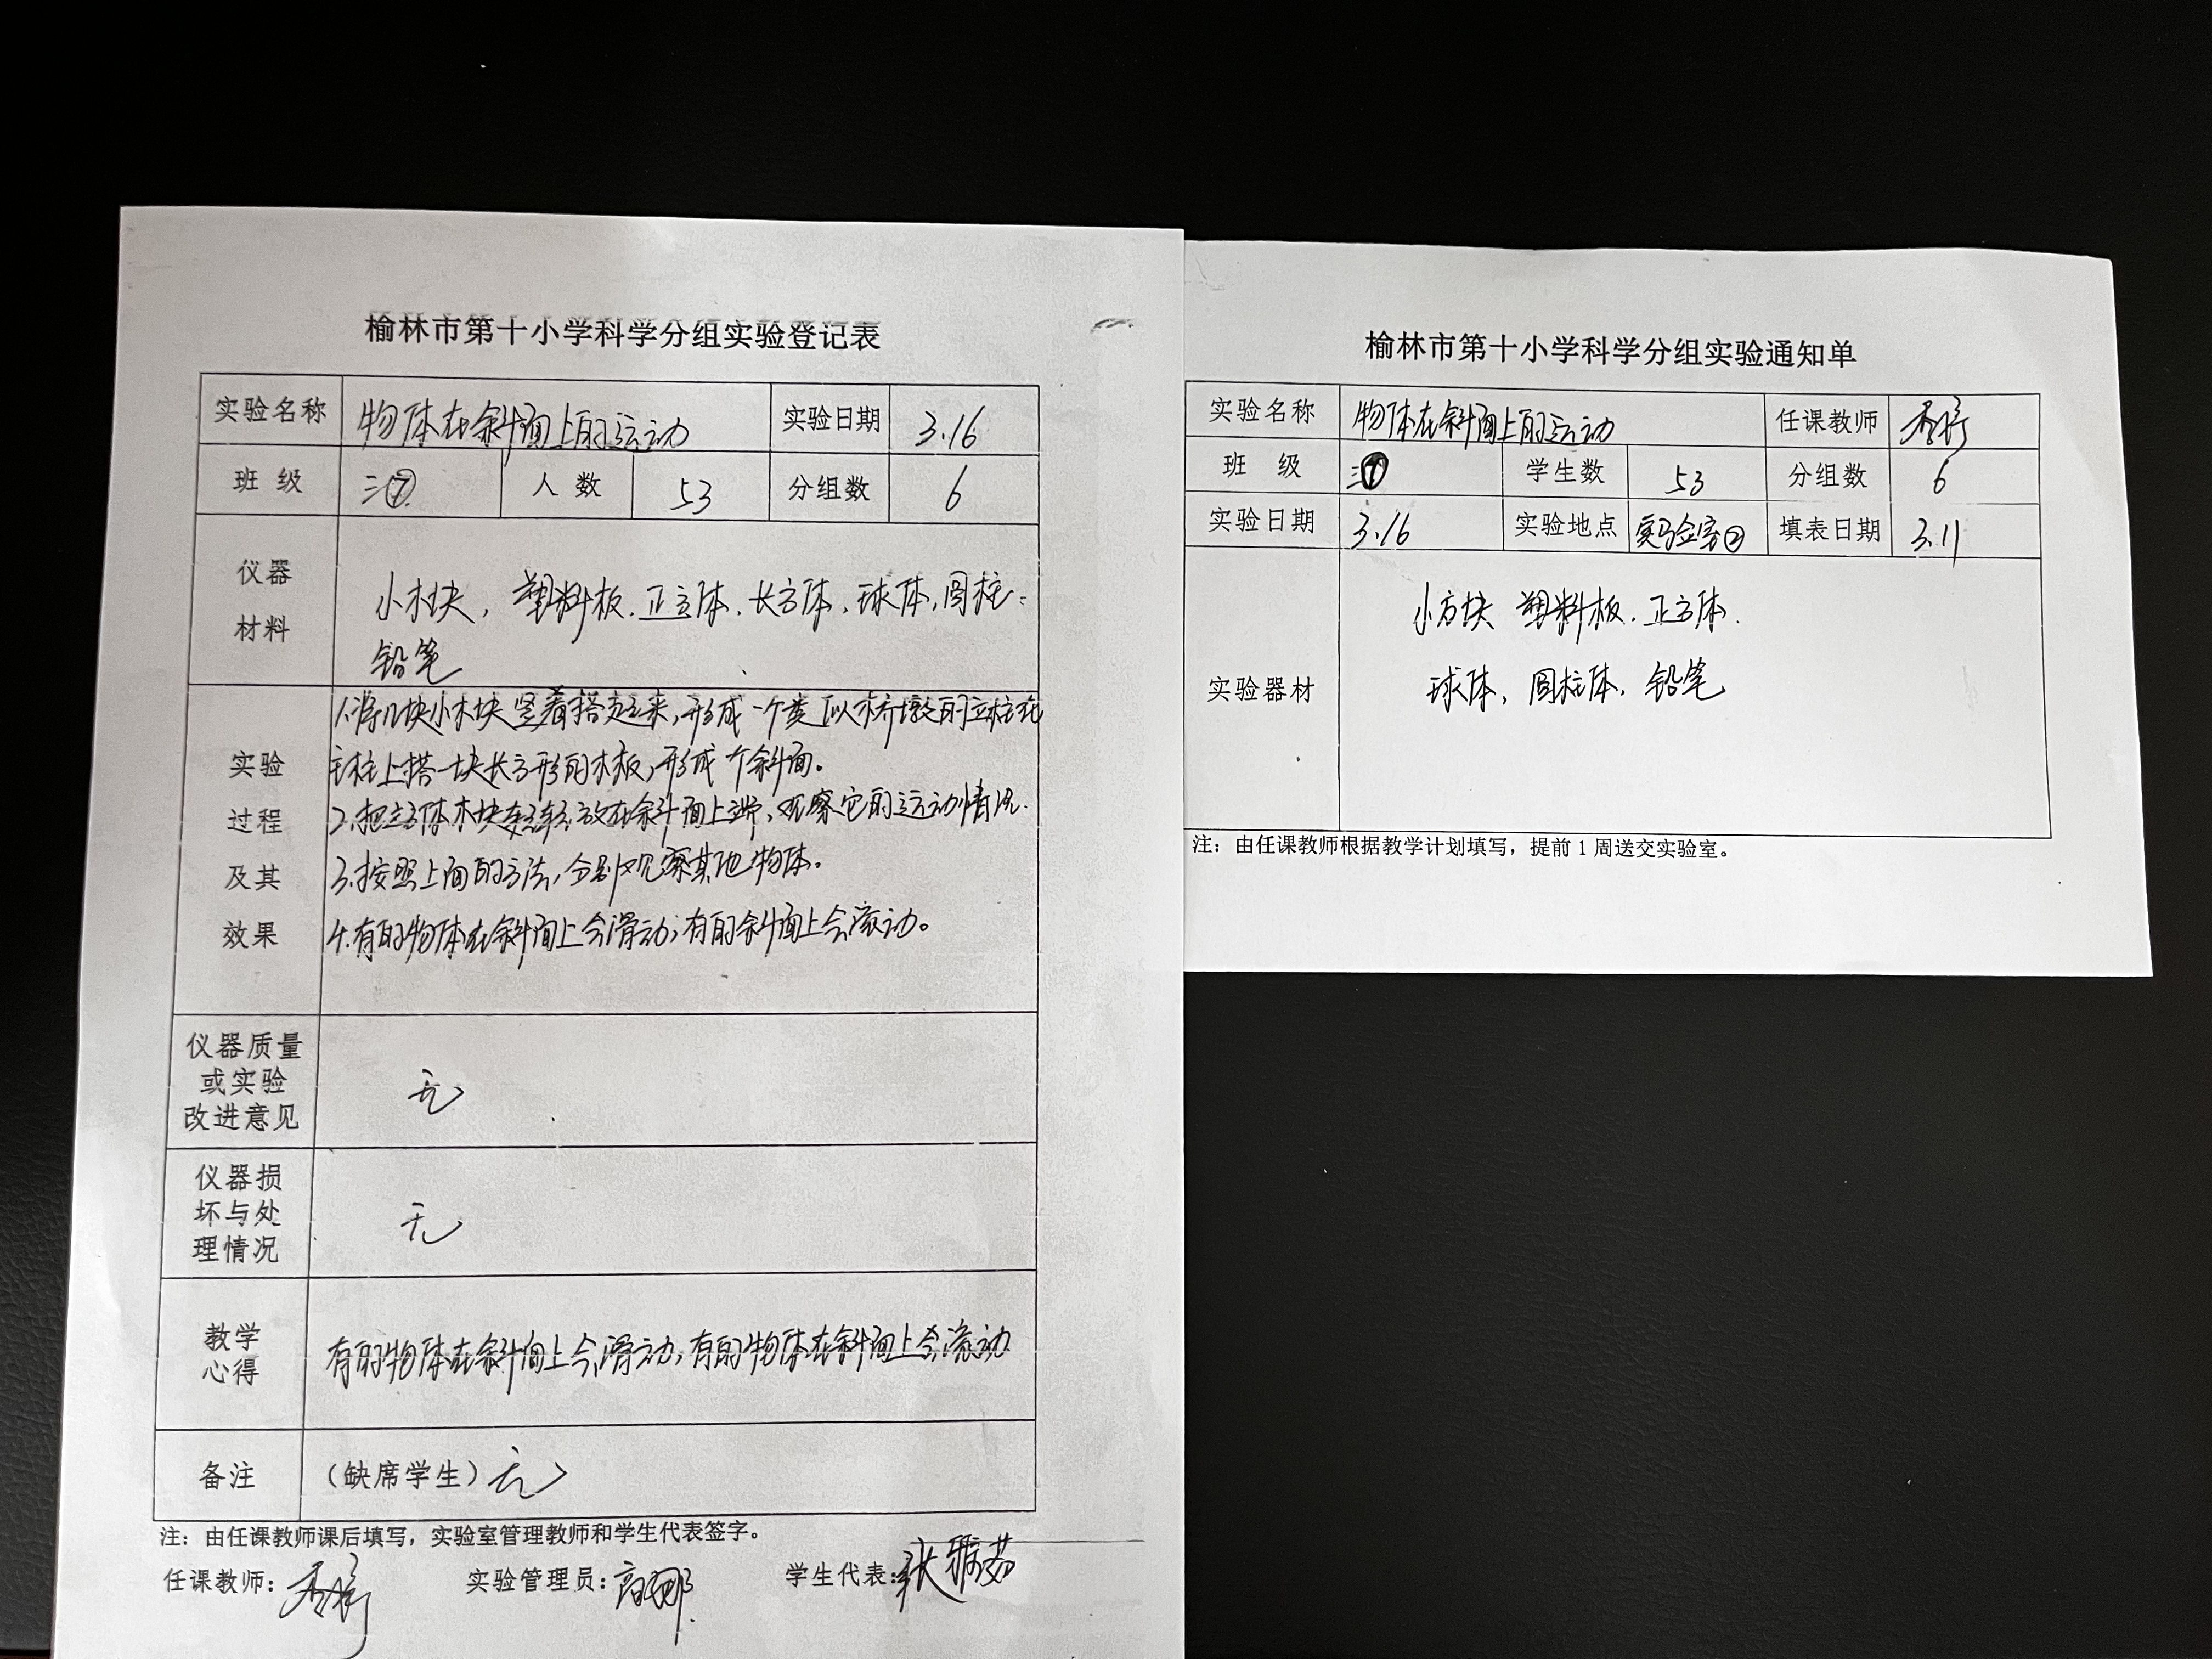 榆林市第十小学科学分组实验登记表
实验名称 物体在斜面上的运动 实验日期 3.16
班 级 三⑦ 人 数 53 分组数 6
仪器
材料
小木块,塑料板.正方体.长方体.球体,圆柱
铅笔
实验
过程
及其
效果
1.将几块小木块竖着搭起来,形成一个类似木桥墩的立柱在
立柱上搭一块长方形的木板,形成个斜面。
2.把立方体木块轻轻放在斜面上端,观察它的运动情况.
3.按照上面的方法,分别观察其他物体。
4.有的物体在斜面上会滑动;有的斜面上会滚动。
仪器质量
或实验
改进意见
无
仪器损
坏与处
理情况
无
教学
心得
有的物体在斜面上会滑动,有的物体在斜面上会滚动
备注 (缺席学生)无
注:由任课教师课后填写,实验室管理教师和学生代表签字。
任课教师: 实验管理员:高娜 学生代表:张
榆林市第十小学科学分组实验通知单
实验名称 物体在斜面上的运动 任课教师
班 级 三⑦ 学生数 53 分组数 6
实验日期 3.16 实验地点 实验室② 填表日期 3.11
实验器材
小方块 塑料板.正方体.
球体,圆柱体,铅笔
注:由任课教师根据教学计划填写,提前1周送交实验室。